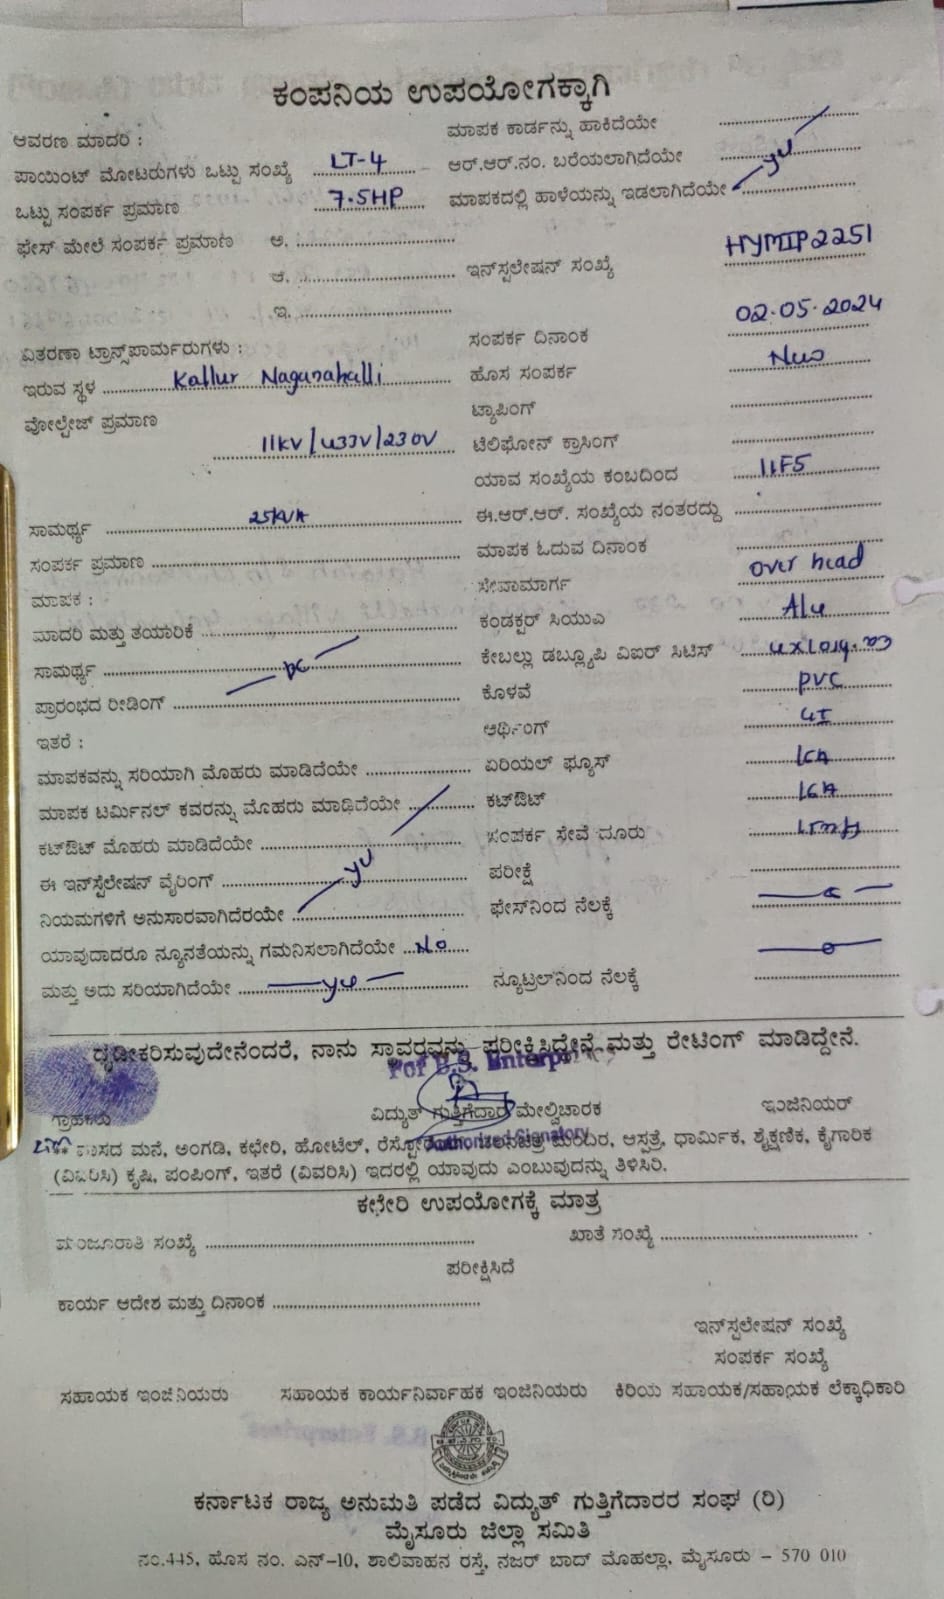 ಕಂಪನಿಯ ಉಪಯೋಗಕ್ಕಾಗಿ
ಆವರಣ ಮಾದರಿ :
ಪಾಯಿಂಟ್ ಮೋಟರುಗಳು ಒಟ್ಟು ಸಂಖ್ಯೆ LT-4
ಒಟ್ಟು ಸಂಪರ್ಕ ಪ್ರಮಾಣ 7.5HP
ಫೇಸ್ ಮೇಲೆ ಸಂಪರ್ಕ ಪ್ರಮಾಣ ಅ.
ಆ.
ಇ.
ವಿತರಣಾ ಟ್ರಾನ್ಸ್‌ಪಾರ್ಮರುಗಳು :
ಇರುವ ಸ್ಥಳ Kallur Naganahalli
ವೋಲ್ಟೇಜ್ ಪ್ರಮಾಣ
11KV/433V/230V
ಸಾಮರ್ಥ್ಯ 25KVA
ಸಂಪರ್ಕ ಪ್ರಮಾಣ
ಮಾಪಕ :
ಮಾದರಿ ಮತ್ತು ತಯಾರಿಕೆ
ಸಾಮರ್ಥ್ಯ
ಪ್ರಾರಂಭದ ರೀಡಿಂಗ್
ಇತರೆ :
ಮಾಪಕವನ್ನು ಸರಿಯಾಗಿ ಮೊಹರು ಮಾಡಿದೆಯೇ
ಮಾಪಕ ಟರ್ಮಿನಲ್ ಕವರನ್ನು ಮೊಹರು ಮಾಡಿದೆಯೇ
ಕಟ್‌ಔಟ್ ಮೊಹರು ಮಾಡಿದೆಯೇ
ಈ ಇನ್‌ಸ್ಟಲೇಷನ್ ವೈರಿಂಗ್
ನಿಯಮಗಳಿಗೆ ಅನುಸಾರವಾಗಿದೆರಯೇ
ಯಾವುದಾದರೂ ನ್ಯೂನತೆಯನ್ನು ಗಮನಿಸಲಾಗಿದೆಯೇ No
ಮತ್ತು ಅದು ಸರಿಯಾಗಿದೆಯೇ
ಮಾಪಕ ಕಾರ್ಡನ್ನು ಹಾಕಿದೆಯೇ
ಆರ್.ಆರ್.ನಂ. ಬರೆಯಲಾಗಿದೆಯೇ
ಮಾಪಕದಲ್ಲಿ ಹಾಳೆಯನ್ನು ಇಡಲಾಗಿದೆಯೇ
ಇನ್‌ಸ್ಪಲೇಷನ್ ಸಂಖ್ಯೆ HYMIP2251
ಸಂಪರ್ಕ ದಿನಾಂಕ 02.05.2024
ಹೊಸ ಸಂಪರ್ಕ New
ಟ್ಯಾಪಿಂಗ್
ಟೆಲಿಫೋನ್ ಕ್ರಾಸಿಂಗ್
ಯಾವ ಸಂಖ್ಯೆಯ ಕಂಬದಿಂದ 11F5
ಈ.ಆರ್.ಆರ್. ಸಂಖ್ಯೆಯ ನಂತರದ್ದು
ಮಾಪಕ ಓದುವ ದಿನಾಂಕ
ಸೇವಾಮಾರ್ಗ Over head
ಕಂಡಕ್ಟರ್ ಸಿಯುಎ Alu
ಕೇಬಲ್ಲು ಡಬ್ಲ್ಯೂಪಿ ವಿಐರ್ ಸಿಟಿಸ್
ಕೊಳವೆ PVC
ಆರ್ಥಿಂಗ್
ಏರಿಯಲ್ ಫ್ಯೂಸ್ 16A
ಕಟ್‌ಔಟ್ 16A
ಸಂಪರ್ಕ ಸೇವೆ ದೂರು
ಪರೀಕ್ಷೆ
ಫೇಸ್‌ನಿಂದ ನೆಲಕ್ಕೆ
ನ್ಯೂಟ್ರಲ್‌ನಿಂದ ನೆಲಕ್ಕೆ
ಧೃಢೀಕರಿಸುವುದೇನೆಂದರೆ, ನಾನು ಸ್ಥಾವರವನ್ನು ಪರೀಕ್ಷಿಸಿದ್ದೇನೆ ಮತ್ತು ರೇಟಿಂಗ್ ಮಾಡಿದ್ದೇನೆ.
For B.S. Enterprises
ಗ್ರಾಹಕರು ವಿದ್ಯುತ್ ಗುತ್ತಿಗೆದಾರ ಮೇಲ್ವಿಚಾರಕ ಇಂಜಿನಿಯರ್
Authorised Signatory
ವಾಸದ ಮನೆ, ಅಂಗಡಿ, ಕಛೇರಿ, ಹೋಟೆಲ್, ಮಂದಿರ, ಆಸ್ಪತ್ರೆ, ಧಾರ್ಮಿಕ, ಶೈಕ್ಷಣಿಕ, ಕೈಗಾರಿಕ
(ವಿವರಿಸಿ) ಕೃಷಿ, ಪಂಪಿಂಗ್, ಇತರೆ (ವಿವರಿಸಿ) ಇದರಲ್ಲಿ ಯಾವುದು ಎಂಬುವುದನ್ನು ತಿಳಿಸಿರಿ.
ಕಛೇರಿ ಉಪಯೋಗಕ್ಕೆ ಮಾತ್ರ
ಮಂಜೂರಾತಿ ಸಂಖ್ಯೆ ಖಾತೆ ಸಂಖ್ಯೆ
ಪರೀಕ್ಷಿಸಿದೆ
ಕಾರ್ಯ ಆದೇಶ ಮತ್ತು ದಿನಾಂಕ
ಇನ್‌ಸ್ಟಲೇಷನ್ ಸಂಖ್ಯೆ
ಸಂಪರ್ಕ ಸಂಖ್ಯೆ
ಸಹಾಯಕ ಇಂಜಿನಿಯರು ಸಹಾಯಕ ಕಾರ್ಯನಿರ್ವಾಹಕ ಇಂಜಿನಿಯರು ಕಿರಿಯ ಸಹಾಯಕ/ಸಹಾಯಕ ಲೆಕ್ಕಾಧಿಕಾರಿ
ಕರ್ನಾಟಕ ರಾಜ್ಯ ಅನುಮತಿ ಪಡೆದ ವಿದ್ಯುತ್ ಗುತ್ತಿಗೆದಾರರ ಸಂಘ (ರಿ)
ಮೈಸೂರು ಜಿಲ್ಲಾ ಸಮಿತಿ
ನಂ.445, ಹೊಸ ನಂ. ಎನ್-10, ಶಾಲಿವಾಹನ ರಸ್ತೆ, ನಜರ್ ಬಾದ್ ಮೊಹಲ್ಲಾ, ಮೈಸೂರು - 570 010